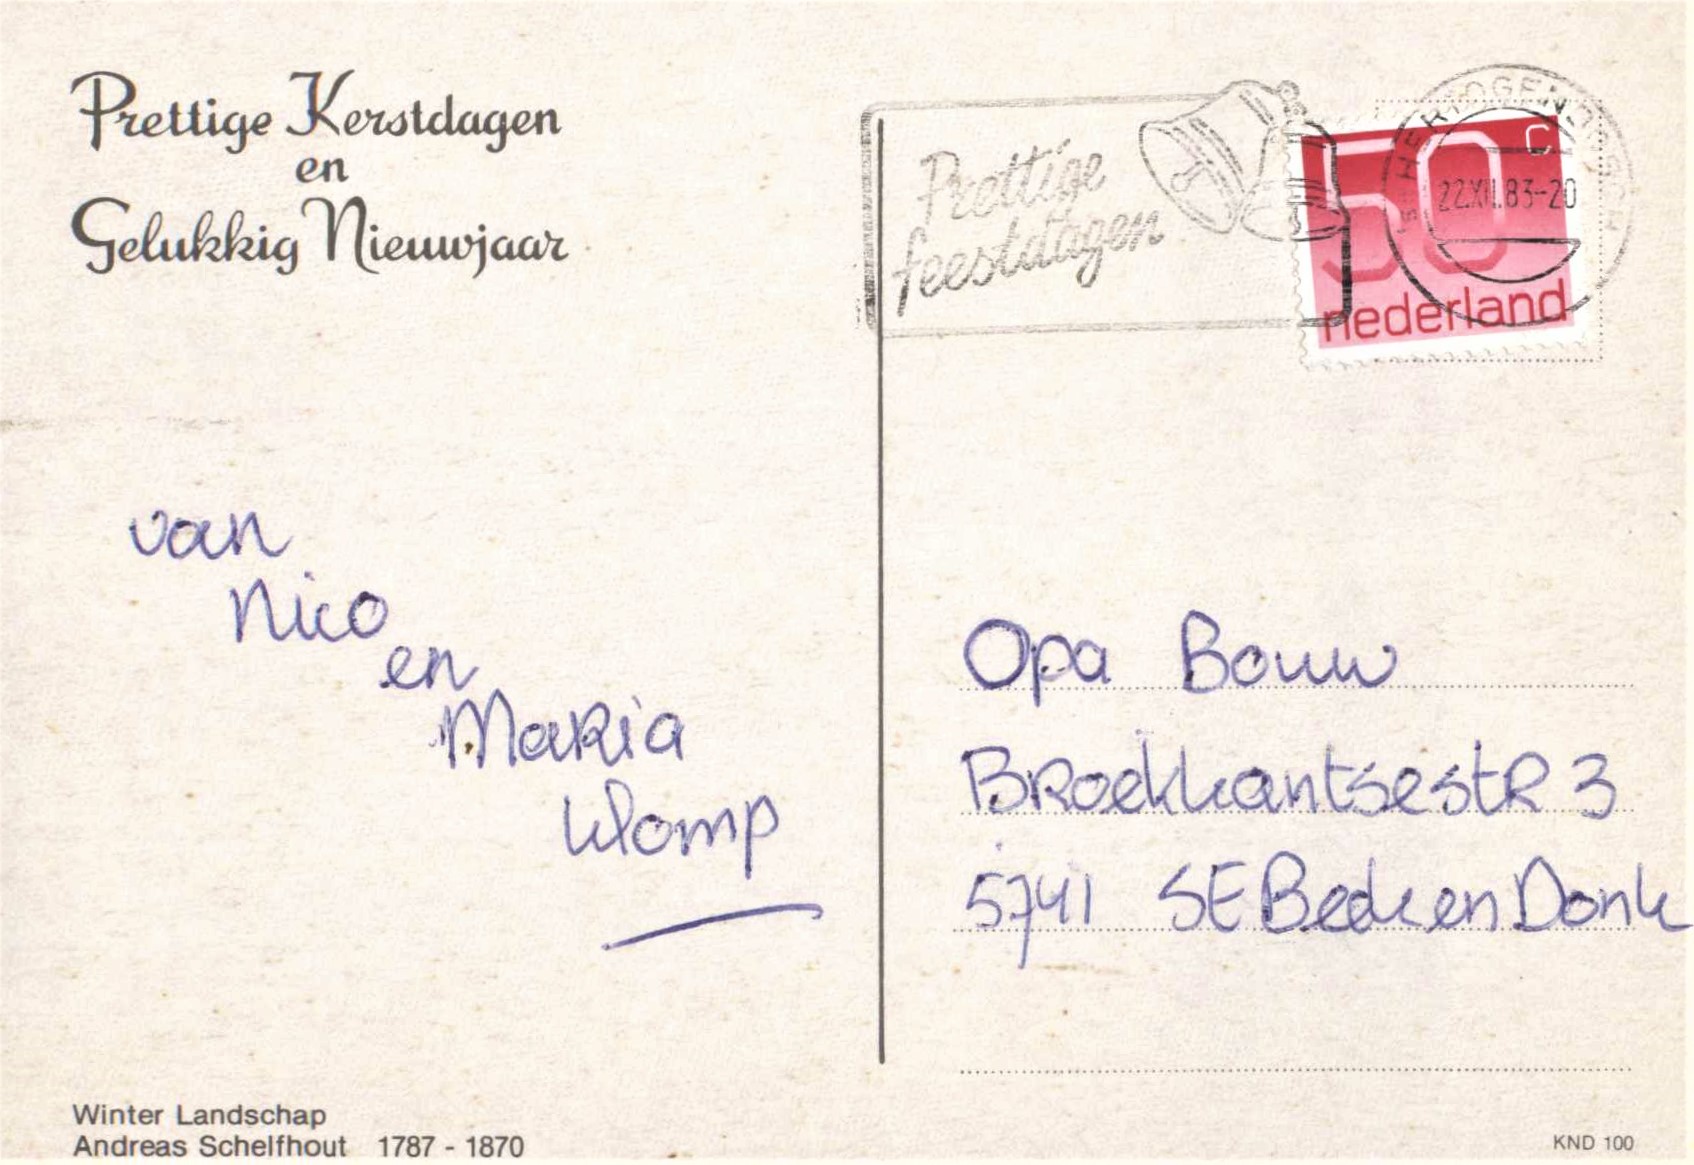 Prettige Kerstdagen
en
Gelukkig Nieuwjaar
van
Nico
en
Maria
Klomp
Winter Landschap
Andreas Schelfhout 1787 - 1870
Prettige
feestdagen
50 c
nederland
'S-HERTOGENBOSCH
22.XII.83-20
Opa Bouw
Broekkantsestr 3
5741 SE Beek en Donk
KND 100